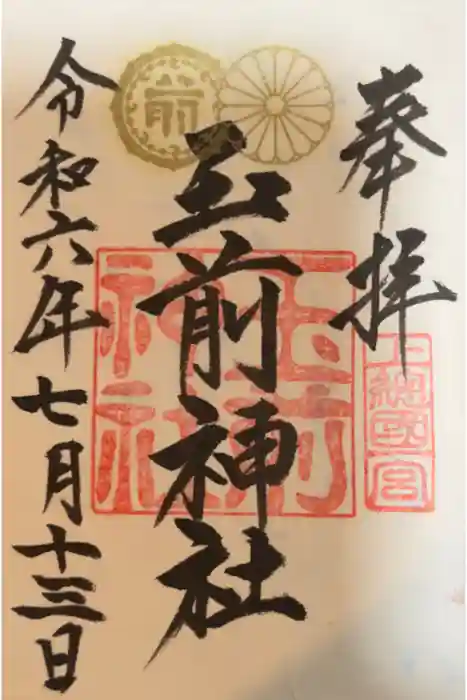 奉拝
上総国一宮
玉前神社
玉前神社
前
令和六年七月十三日